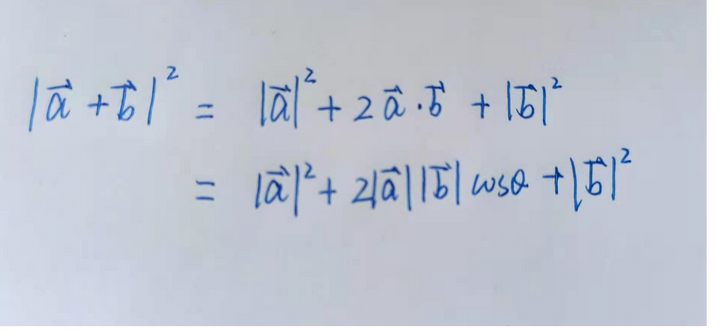 |a⃗ + b⃗|² = |a⃗|² + 2a⃗·b⃗ + |b⃗|²
= |a⃗|² + 2|a⃗||b⃗| cosθ + |b⃗|²